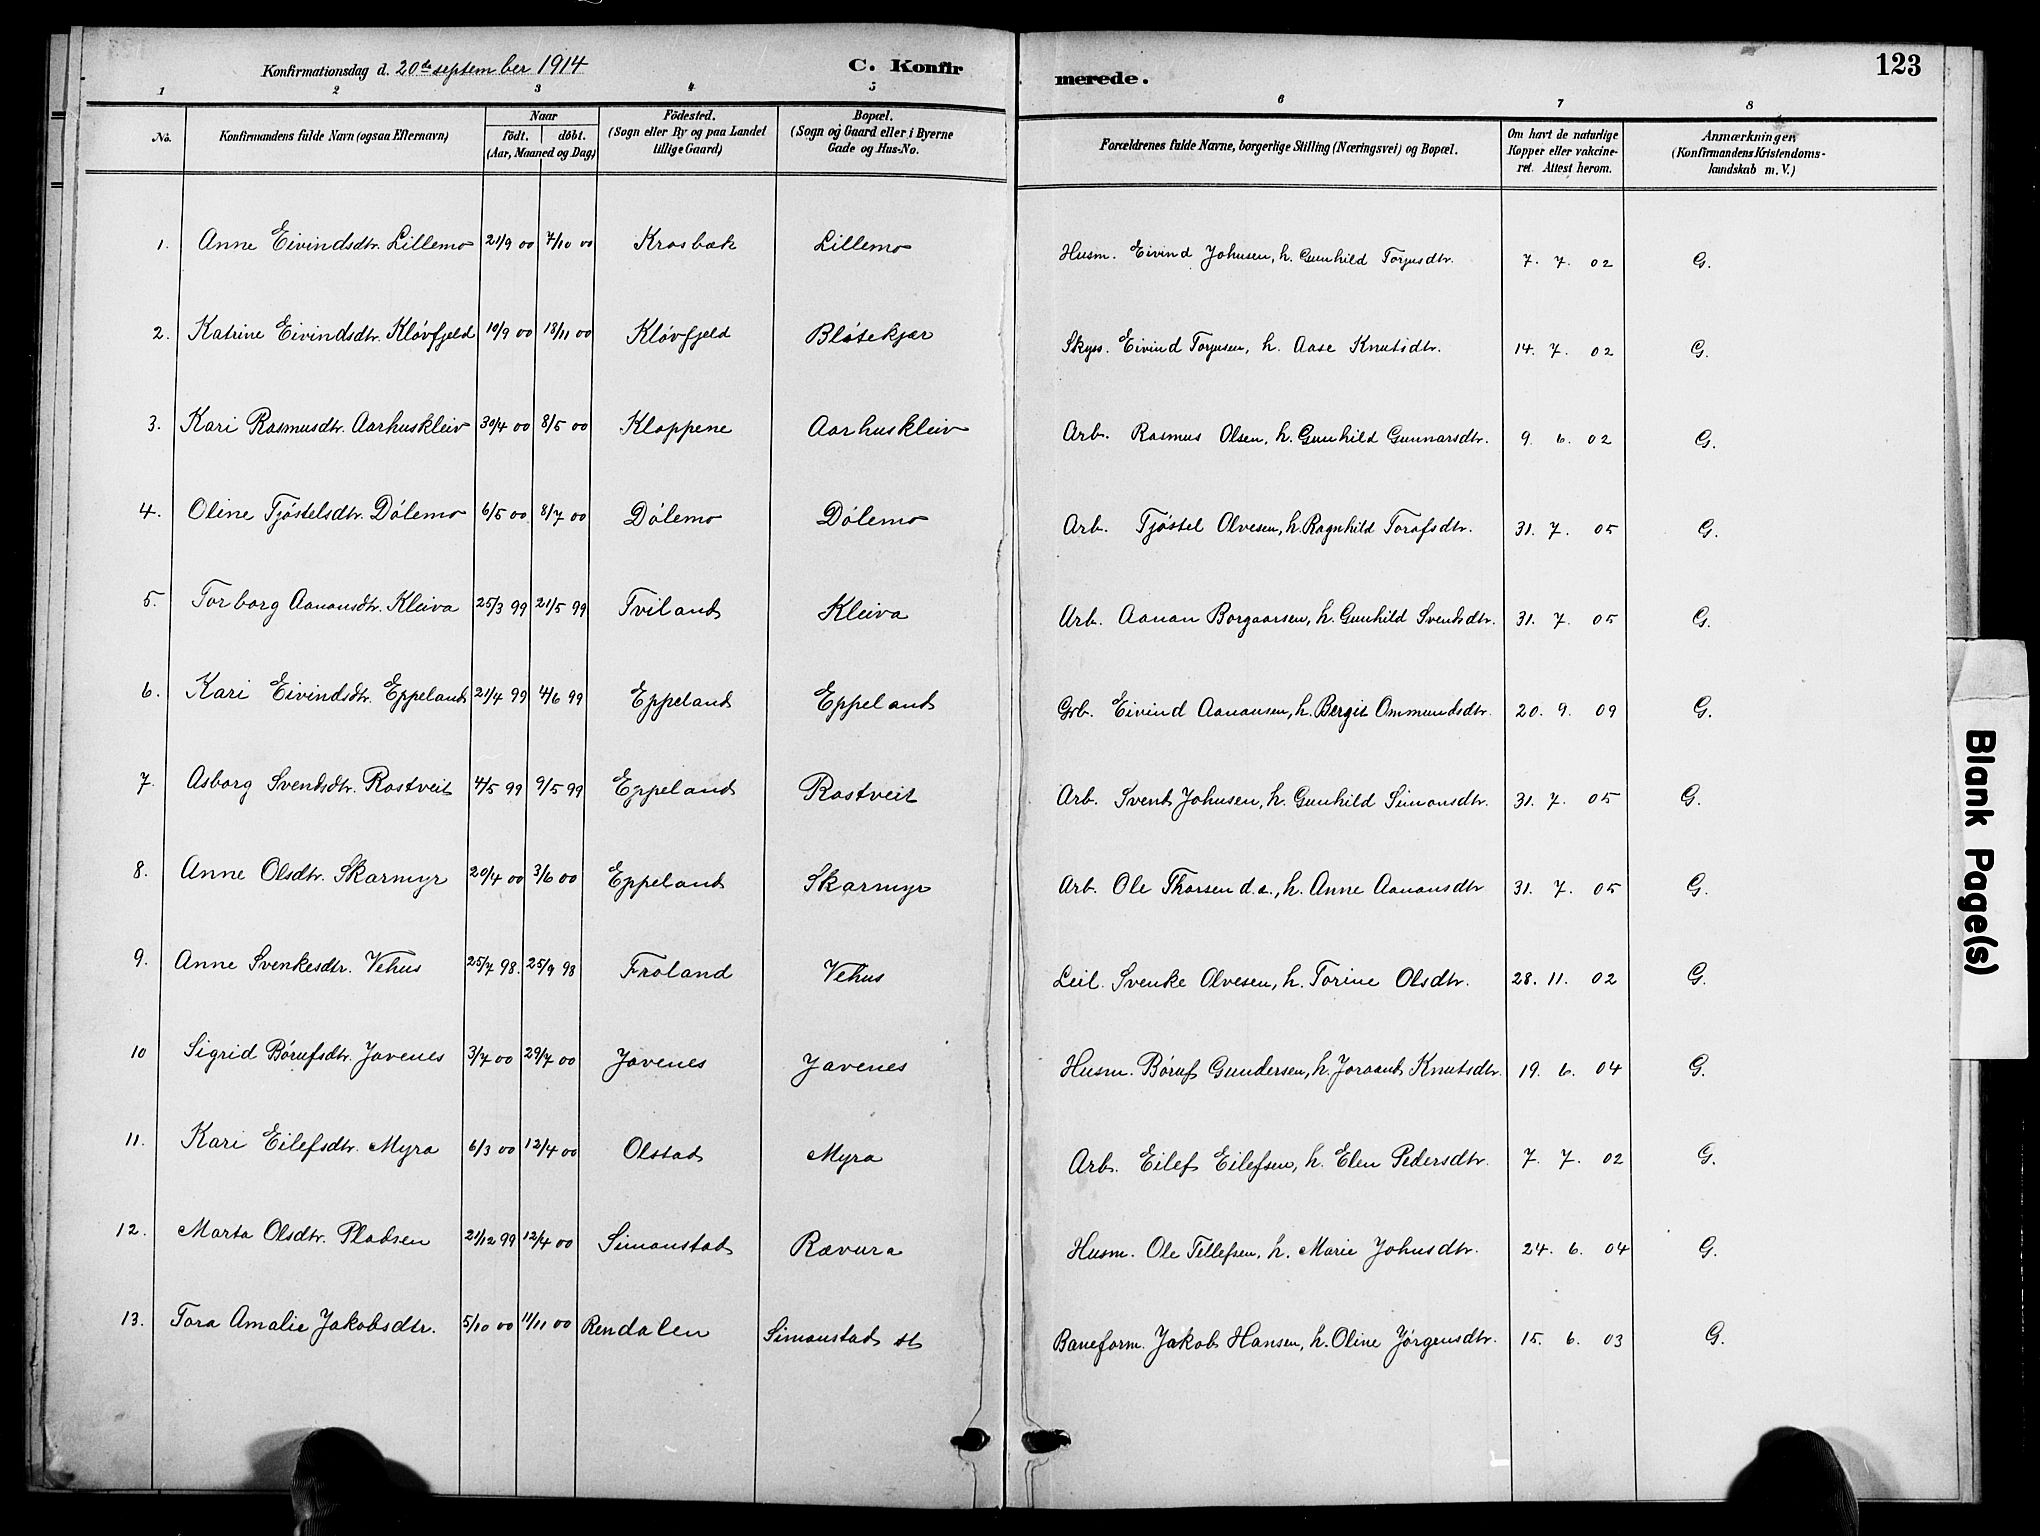 Konfirmationsdag d. 20de september 1914 C. Konfirmerede. 123
1 2 3 4 5 6 7 8
No. Konfirmandens fulde Navn (ogsaa Efternavn) Naar födt. döbt. (Aar, Maaned og Dag) Födested. (Sogn eller By og paa Landet tillige Gaard) Bopæl. (Sogn og Gaard eller i Byerne Gade og Hus-No. Forældrenes fulde Navne, borgerlige Stilling (Næringsvei) og Bopæl. Om havt de naturlige Kopper eller vakcineret. Attest herom. Anmærkninger, (Konfirmandens Kristendomskundskab m. V.)
1. Anne Eivindsdtr. Lillemo 21/9 00 7/10 00 Krosbæk Lillemo Husm. Eivind Johnsen, h. Gunhild Torjusdtr. 7. 7. 02 G.
2. Katrine Eivindsdtr. Kløvfjeld 10/9 00 18/11 00 Kløvfjeld Bløtekjær Skyss. Eivind Torjusen, h. Aase Knutsdtr. 14. 7. 02 G.
3. Kari Rasmusdtr. Aarhuskleiv 30/4 00 8/5 00 Kloppene Aarhuskleiv Arb. Rasmus Olsen, h. Gunhild Gunnarsdtr. 9. 6. 02 G.
4. Oline Tjøstelsdtr. Dølemo 6/5 00 8/7 00 Dølemo Dølemo Arb. Tjøstel Olvesen, h. Ragnhild Torafsdtr. 31. 7. 05 G.
5. Torborg Aanonsdtr. Kleiva 25/3 99 21/5 99 Tviland Kleiva Arb. Aanan Borgaarsen, h. Gunhild Svendsdtr. 31. 7. 05 G.
6. Kari Eivindsdtr. Eppeland 21/4 99 4/6 99 Eppeland Eppeland Grb. Eivind Aanonsen, h. Bergit Ommundsdtr. 20. 9. 09 G.
7. Asborg Svendsdtr. Rostveit 4/5 99 9/5 99 Eppeland Rostveit Arb. Svend Johnsen, h. Gunhild Simonsdtr. 31. 7. 05 G.
8. Anne Olsdtr. Skarmyr 20/4 00 3/6 00 Eppeland Skarmyr Arb. Ole Thorsen d.e., h. Anne Aanonsdtr 31. 7. 05 G.
9. Anne Svenkesdtr. Vehus 25/7 98. 25/9 98 Froland Vehus Leil. Svenke Olvesen, h. Torine Olsdtr. 28. 11. 02 G.
10 Sigrid Børufsdtr. Jovenes 3/7 00 29/7 00 Jovenes Jovenes Husm. Børuf Gundersen, h. Joraand Knutsdtr. 19. 6. 04 G.
11. Kari Eilefsdtr. Myra 6/3 00 12/4 00 Olstad Myra Arb. Eilef Eilefsen, h. Elen Pedersdtr. 7. 7. 02 G.
12. Marta Olsdtr. Pladsen 21/12 99 12/4 00 Simonstad Rævura Husm. Ole Tellefsen, h. Marie Johnsdtr. 24. 6. 04 G.
13. Tora Amalie Jakobsdtr. 5/10 00 11/11 00 Rendalen Simonstad st Baneform. Jakob Hansen, h. Oline Jörgensdtr. 15. 6. 03 G.
Blank Page(s)